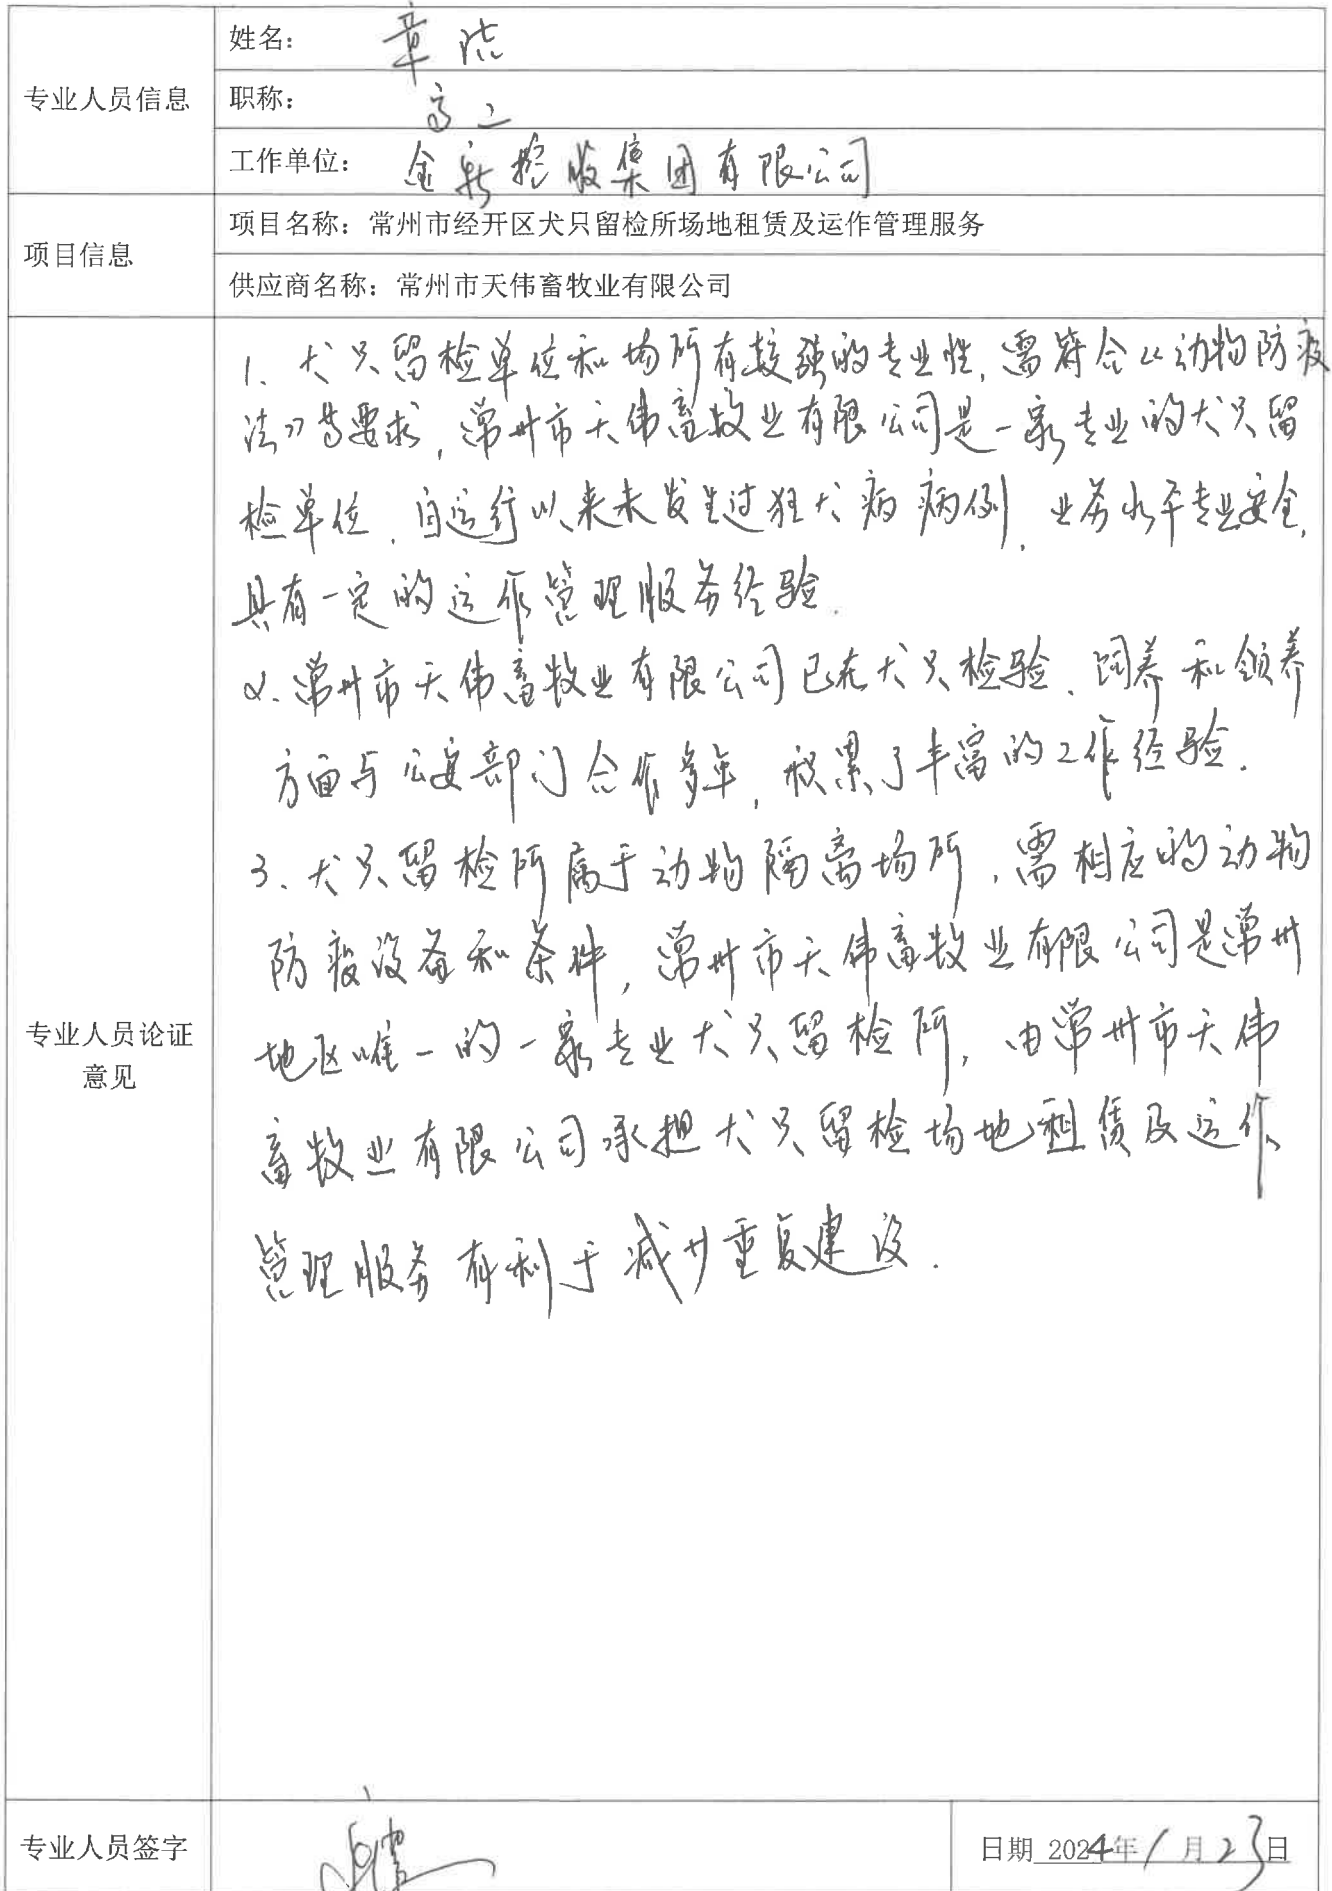 专业人员信息
姓名：章洁
职称：高工
工作单位：金新控股集团有限公司
项目信息
项目名称：常州市经开区犬只留检所场地租赁及运作管理服务
供应商名称：常州市天伟畜牧业有限公司
专业人员论证
意见
1、犬只留检单位和场所有较强的专业性，需符合《动物防疫
法》等要求，常州市天伟畜牧业有限公司是一家专业的犬只留
检单位，自运行以来未发生过狂犬病病例，业务水平专业安全，
具有一定的运作管理服务经验.
2、常州市天伟畜牧业有限公司已在犬只检验、饲养和领养
方面与公安部门合作多年，积累了丰富的工作经验.
3、犬只留检所属于动物隔离场所，需相应的动物
防疫设备和条件，常州市天伟畜牧业有限公司是常州
地区唯一的一家专业犬只留检所，由常州市天伟
畜牧业有限公司承担犬只留检场地租赁及运作
管理服务有利于减少重复建设.
专业人员签字
日期 2024年1月23日